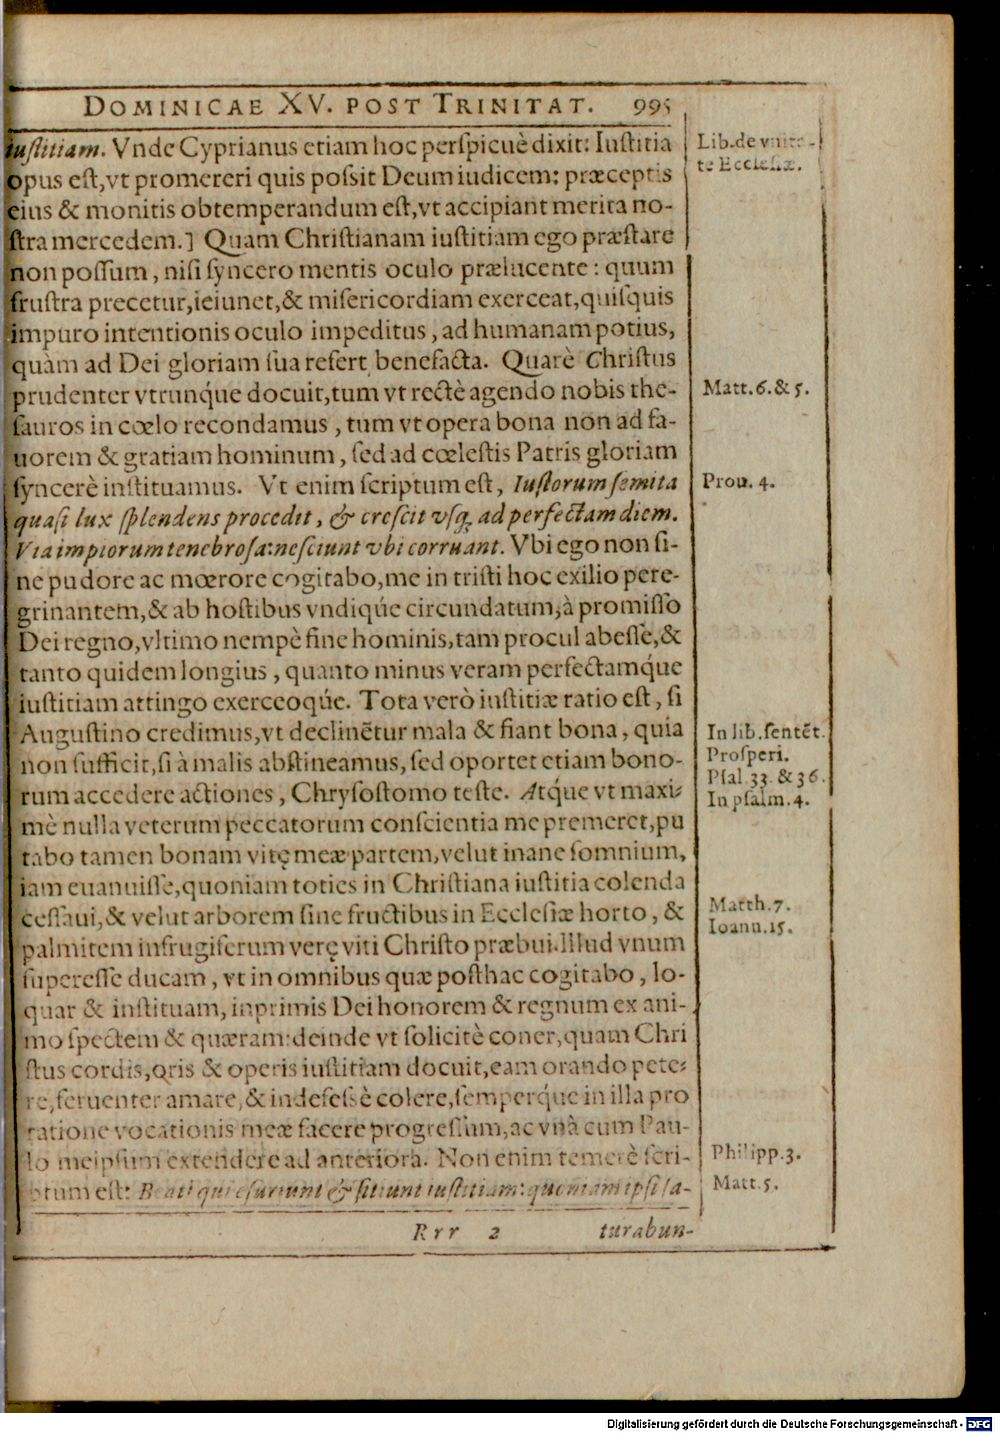 DOMINICAE XV. POST TRINITAT. 995
iuſtitiam. Vnde Cyprianus etiam hoc perſpicuè dixit: Iuſtitia
opus eſt,vt promereri quis poſsit Deum iudicem: præceptis
eius & monitis obtemperandum eſt,vt accipiant merita no-
ſtra mercedem.] Quam Chriſtianam iuſtitiam ego præſtare
non poſſum, niſi ſyncero mentis oculo prælucente: quum
fruſtra precetur,ieiunet,& miſericordiam exerceat,quiſquis
impuro intentionis oculo impeditus, ad humanam potius,
quàm ad Dei gloriam ſua refert benefacta. Quarè Chriſtus
prudenter vtrunq́ue docuit,tum vt rectè agendo nobis the-
ſauros in cœlo recondamus, tum vt opera bona non ad fa-
uorem & gratiam hominum, ſed ad cœleſtis Patris gloriam
ſyncerè inſtituamus. Vt enim ſcriptum eſt, Iuſtorum ſemita
quaſi lux ſplendens procedit, & creſcit vſq; ad perfectam diem.
Via impiorum tenebroſa: neſciunt vbi corruant. Vbi ego non ſi-
ne pudore ac mœrore cogitabo,me in triſti hoc exilio pere-
grinantem,& ab hoſtibus vndiq́ue circundatum,à promiſſo
Dei regno,vltimo nempè fine hominis,tam procul abeſſe,&
tanto quidem longius, quanto minus veram perfectamq́ue
iuſtitiam attingo exerceoq́ue. Tota verò iuſtitiæ ratio eſt, ſi
Auguſtino credimus,vt declinētur mala & fiant bona, quia
non ſufficit,ſi à malis abſtineamus, ſed oportet etiam bono-
rum accedere actiones, Chryſoſtomo teſte. Atq́ue vt maxi-
mè nulla veterum peccatorum conſcientia me premeret,pu
tabo tamen bonam vitę meæ partem,velut inane ſomnium,
iam euanuiſſe,quoniam toties in Chriſtiana iuſtitia colenda
ceſſaui,& velut arborem ſine fructibus in Eccleſiæ horto, &
palmitem infrugiferum verę viti Chriſto præbui. Illud vnum
ſupereſſe ducam, vt in omnibus quæ poſthac cogitabo, lo-
quar & inſtituam, inprimis Dei honorem & regnum ex ani-
mo ſpectem & quæram: deinde vt ſolicitè coner,quam Chri
ſtus cordis,oris & operis iuſtitiam docuit,eam orando pete-
re,feruenter amare,& indefeſsè colere,ſemperq́ue in illa pro
ratione vocationis meæ facere progreſſum,ac vnà cum Pau-
lo meipſum extendere ad anteriora. Non enim temerè ſcri-
ptum eſt: Beati qui eſuriunt & ſitiunt iuſtitiam: quoniam ipſi ſa-
Rrr 2 turabun-
Lib.de vnita-
te Eccleſiæ.
Matt.6.& 5.
Prou. 4.
In lib.ſentēt.
Proſperi.
Pſal.33.& 36.
In pſalm.4.
Matth.7.
Ioann.15.
Philipp.3.
Matt.5.
Digitalisierung gefördert durch die Deutsche Forschungsgemeinschaft - DFG